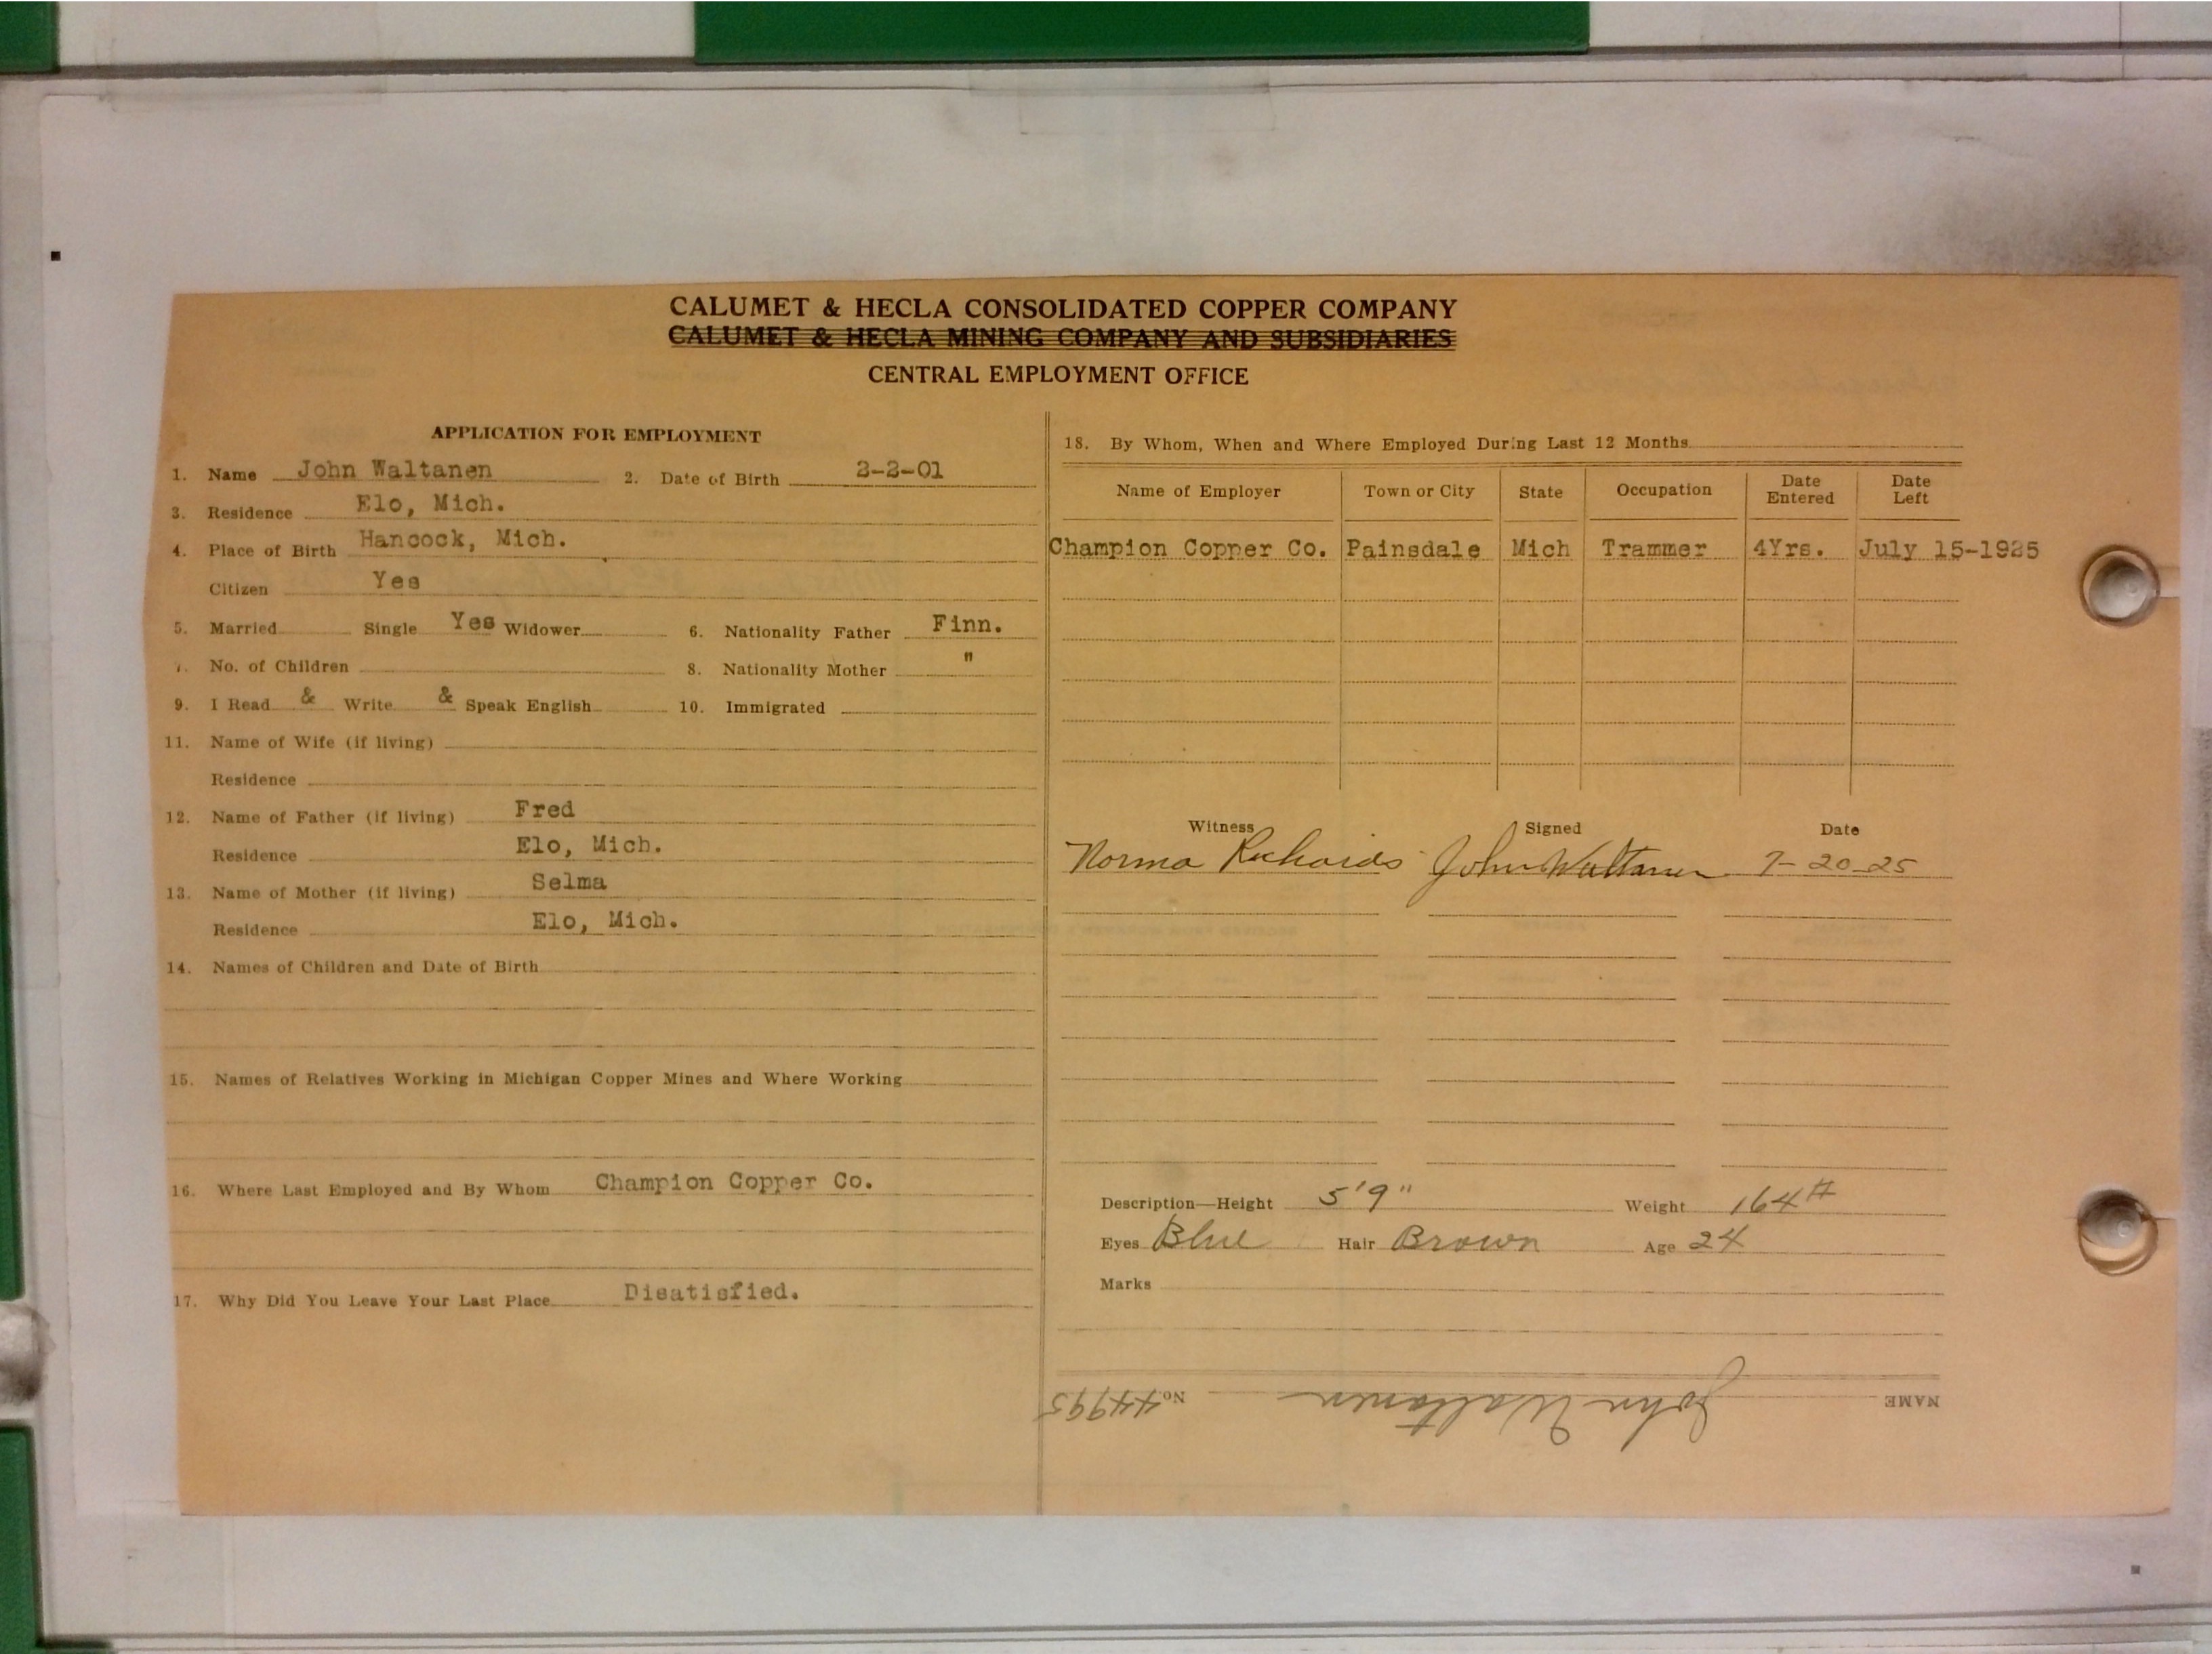 CALUMET & HECLA CONSOLIDATED COPPER COMPANY
CALUMET & HECLA MINING COMPANY AND SUBSIDIARIES
CENTRAL EMPLOYMENT OFFICE
APPLICATION FOR EMPLOYMENT
1. Name John Waltanen 2. Date of Birth 2-2-01
3. Residence Elo, Mich.
4. Place of Birth Hancock, Mich.
Citizen Yes
5. Married Single Yes Widower 6. Nationality Father Finn.
7. No. of Children 8. Nationality Mother "
9. I Read & Write & Speak English 10. Immigrated
11. Name of Wife (if living)
Residence
12. Name of Father (if living) Fred
Residence Elo, Mich.
13. Name of Mother (if living) Selma
Residence Elo, Mich.
14. Names of Children and Date of Birth
15. Names of Relatives Working in Michigan Copper Mines and Where Working
16. Where Last Employed and By Whom Champion Copper Co.
17. Why Did You Leave Your Last Place Disatisfied.
18. By Whom, When and Where Employed During Last 12 Months
Name of Employer Town or City State Occupation Date Entered Date Left
Champion Copper Co. Painsdale Mich Trammer 4Yrs. July 15-1925
Witness Signed Date
Norma Richards John Waltanen 7-20-25
Description—Height 5'9" Weight 164#
Eyes Blue Hair Brown Age 24
Marks
NAME John Waltanen No. 44995